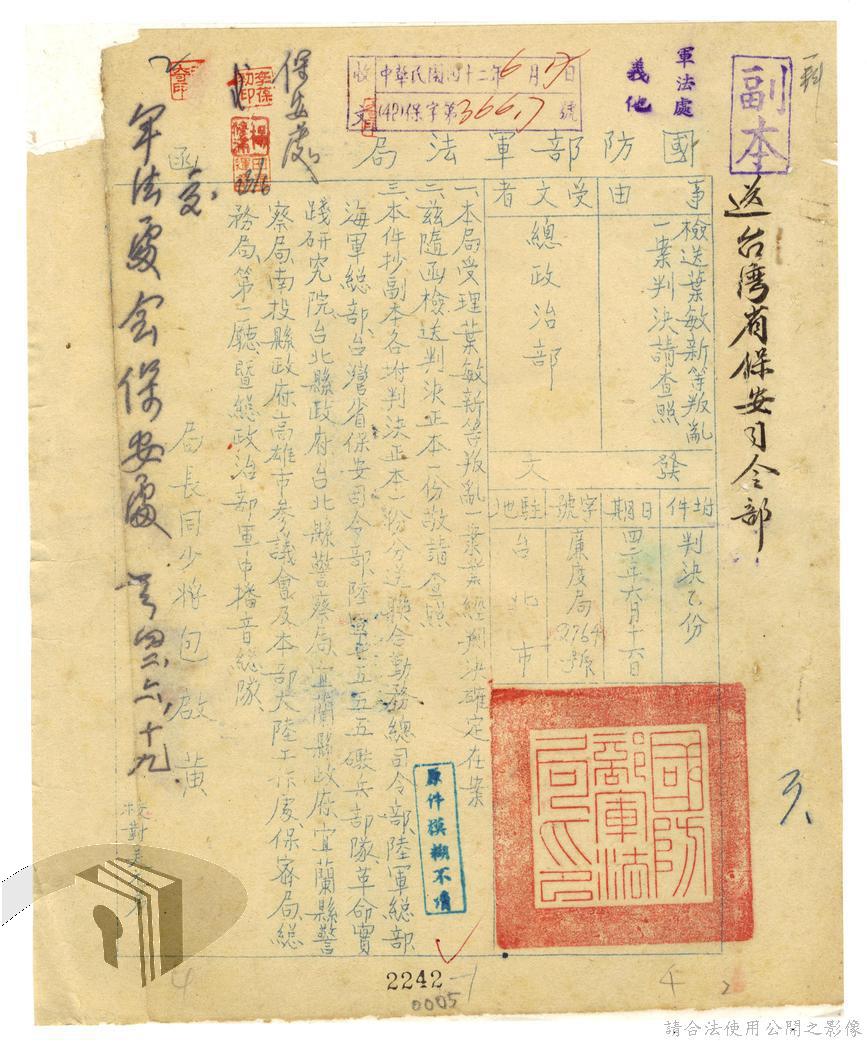 副本
送台湾省保安司令部
軍法處
義他
收文
中華民國四十二年6月 日
(42)保字第3667號
國防部軍法局
函
事由
檢送葉敏新等叛亂
一案判決請查照
受文者
總政治部
發文
附件
判決乙份
日期
四二年六月十六日
字號
廉度局
2764
號
駐地
台北市
一、本局受理葉敏新等叛亂一案業經判決確定在案
二、茲隨函檢送判決正本一份敬請查照
三、本件抄副本各坿判決正本一份分送聯合勤務總司令部、陸軍總部、
海軍總部、台灣省保安司令部、陸軍五五五礮兵部隊、革命實
踐研究院、台北縣政府、台北縣警察局、宜蘭縣政府、宜蘭縣警
察局、南投縣政府、高雄市參議會及本部大陸工作處、保密局、總
務局、第一廳、暨總政治部軍中播音總隊
局長同少將包啟黃
保安處
軍法處會保安處
六、十九
校對
國防部軍法局印
原件模糊不清
2242
0005
4
4
2
請合法使用公開之影像